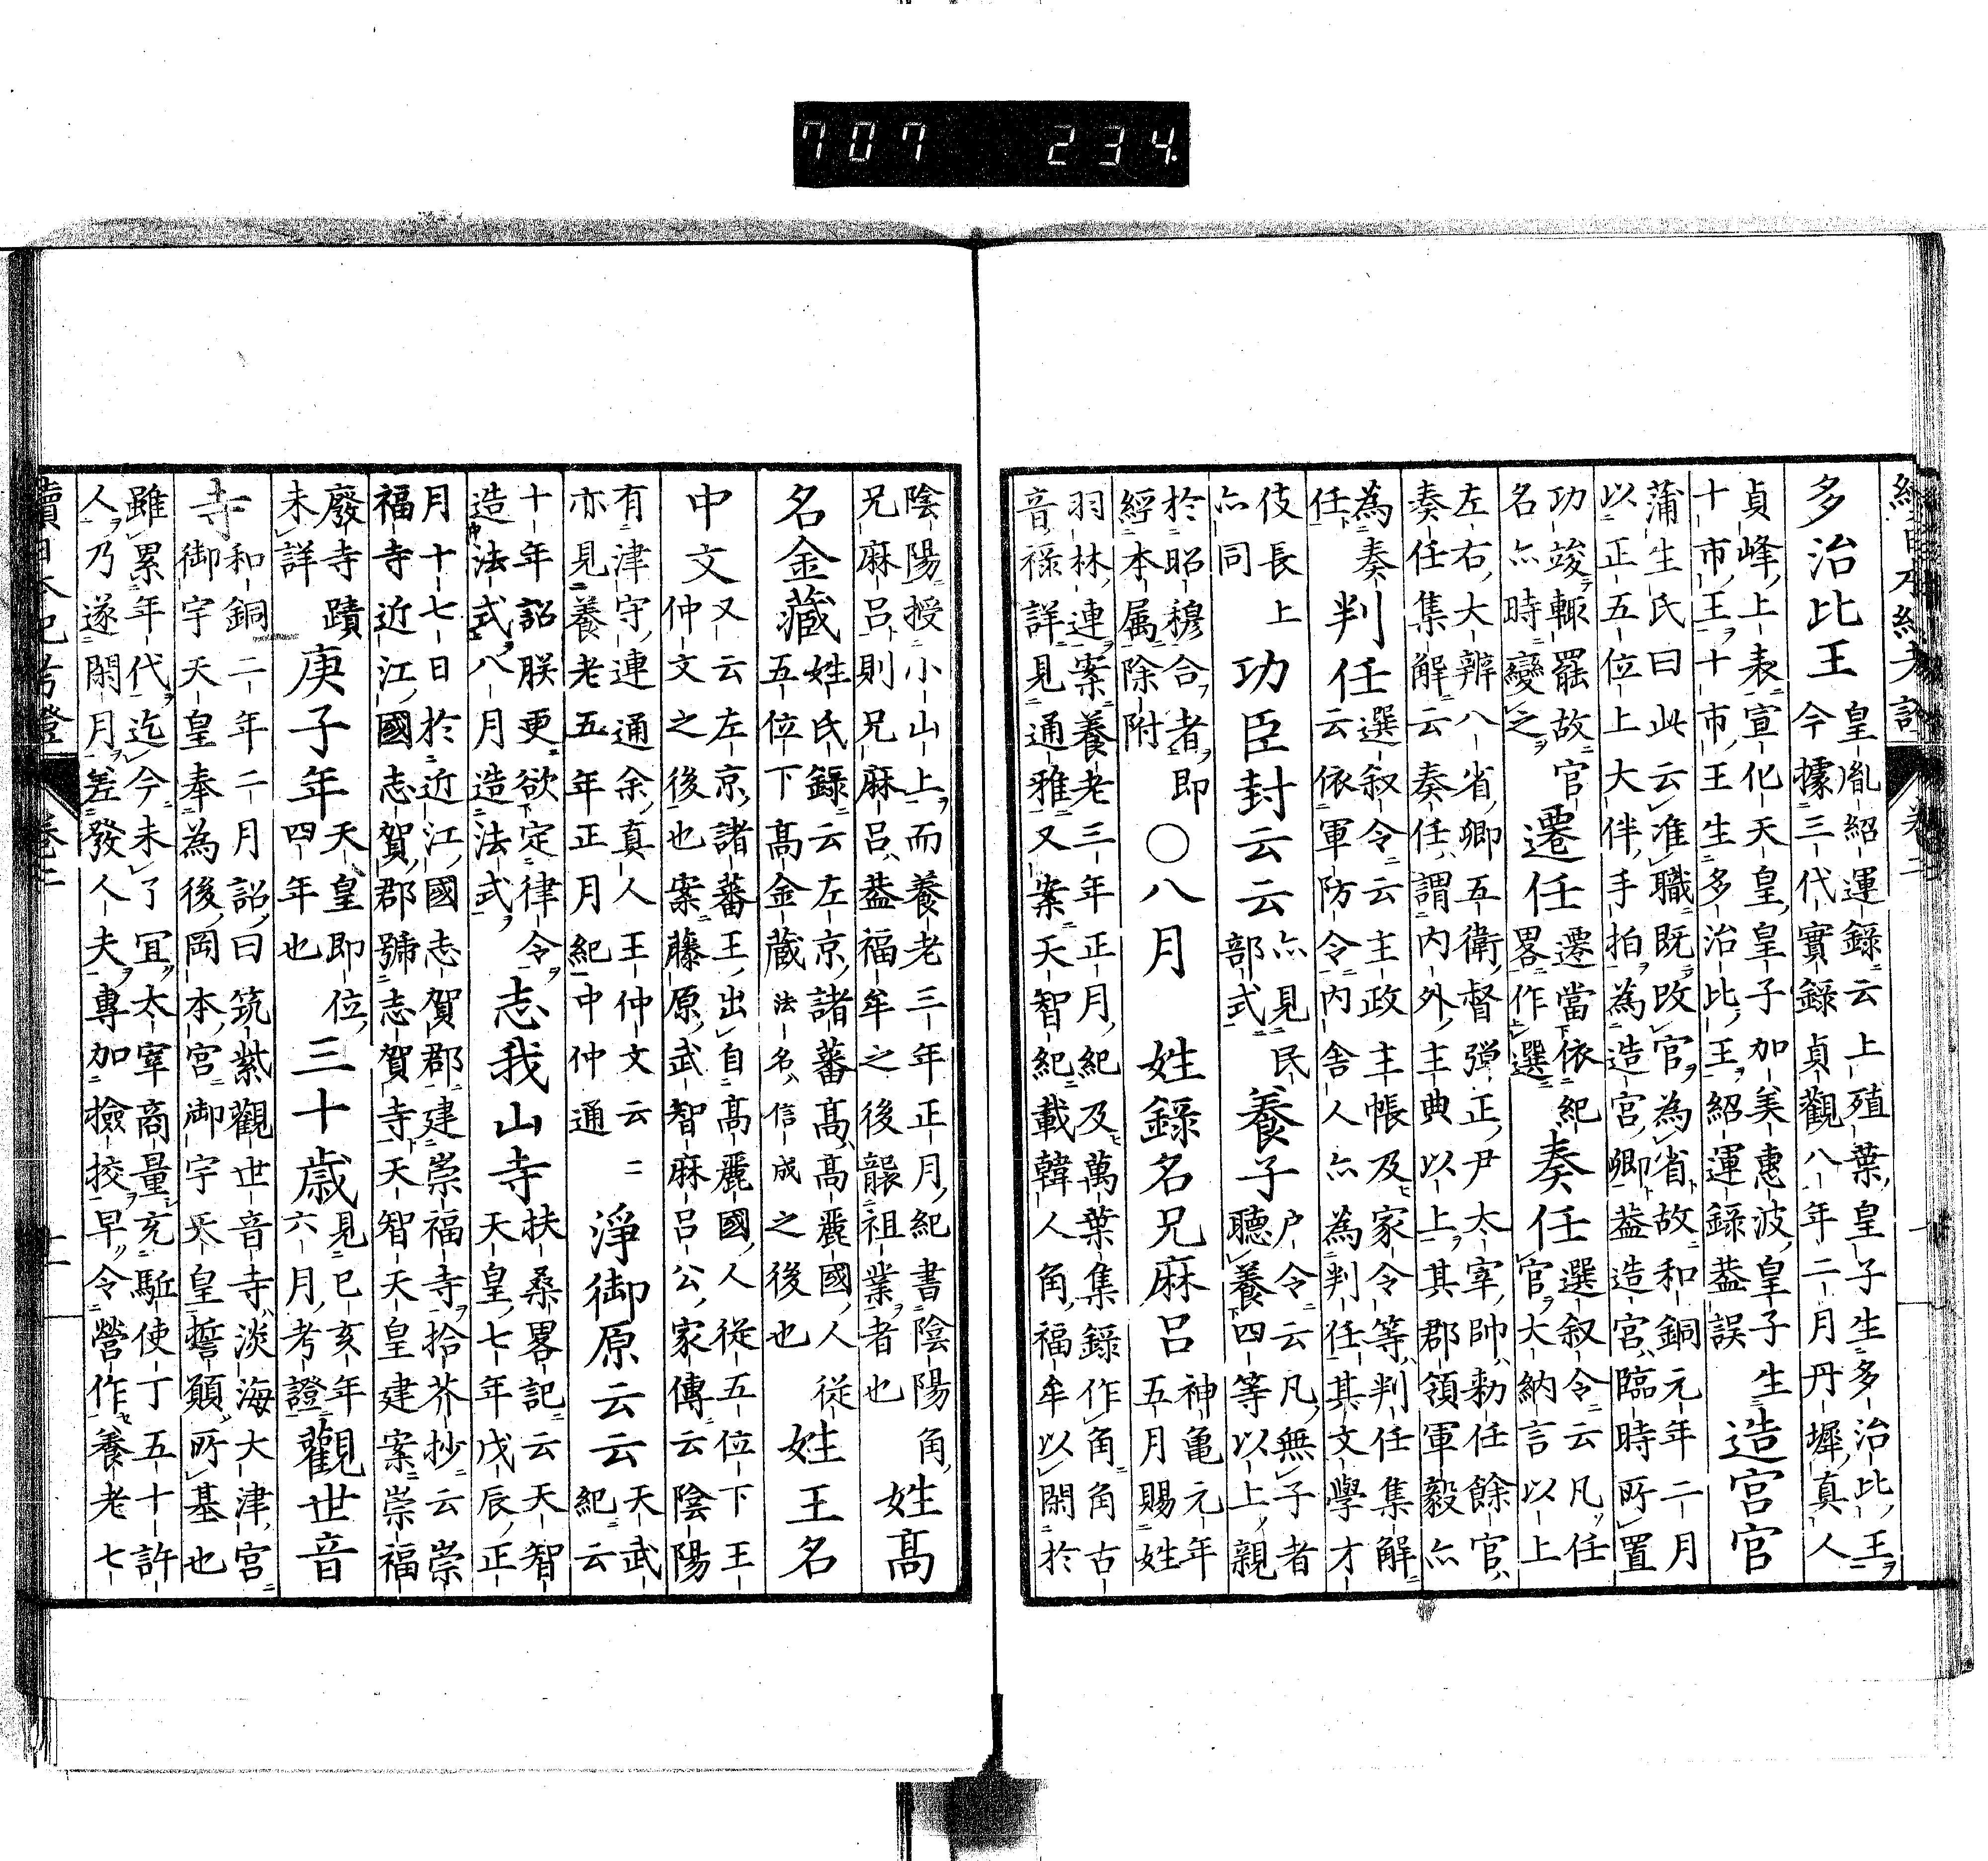 續日本紀考證 卷二
多治比王
皇胤紹運録云上殖葉皇子生多治比王
今據三代實録貞觀八年二月丹墀真人
貞峰上表宣化天皇皇子加美惠波皇子生
十市王十市王生多治比王紹運録蓋誤
造宮官
蒲生氏曰此云准職既改官為省故和銅元年二月
以正五位上大伴手拍為造宮卿蓋造宮臨時所置
功竣輙罷故官
名亦時變之
遷任
遷當依紀
畧作選
奏任
選叙令云凡任
官大納言以上
左右大辨八省卿五衛督弾正尹太宰帥勅任餘官
奏任集解云奏任謂内外主典以上其郡領軍毅亦
為奏
任
判任
選叙令云主政主帳及家令等判任集解
云依軍防令内舎人亦為判任其文學才
伎長上
亦同
功臣封云云
亦見民
部式
養子
户令云凡無子者
聽養四等以上親
於昭穆合者即
經本属除附
〇八月
姓録名兄麻呂
神亀元年
五月賜姓
羽林連案養老三年正月紀及萬葉集録作角角古
音禄詳見通雅又案天智紀載韓人角福牟以閑於
陰陽授小山上而養老三年正月紀書陰陽角
兄麻呂則兄麻呂蓋福牟之後襲祖業者也
姓高
名金藏
姓氏録云左京諸蕃高高麗國人従
五位下高金蔵法名信成之後也
姓王名
中文
又云左京諸蕃王出自高麗國人従五位下王
仲文之後也案藤原武智麻呂公家傳云陰陽
有津守連通余真人王仲文云二
亦見養老五年正月紀中仲通
淨御原云云
天武
紀云
十年詔朕更欲定律令
造法式八月造法式
志我山寺
扶桑畧記云天智
天皇七年戊辰正
月十七日於近江國志賀郡建崇福寺拾芥抄云崇
福寺近江國志賀郡號志賀寺天智天皇建案崇福
廢寺蹟
未詳
庚子年
天皇即位
四年也
三十歳
見己亥年
六月考證
觀世音
寺
和銅二年二月詔曰筑紫觀世音寺淡海大津宮
御宇天皇奉為後岡本宮御宇天皇誓願所基也
雖累年代迄今未了宜太宰商量充駈使丁五十許
人乃遂閑月差發人夫專加撿挍早令營作養老七
續日本紀考證 卷二